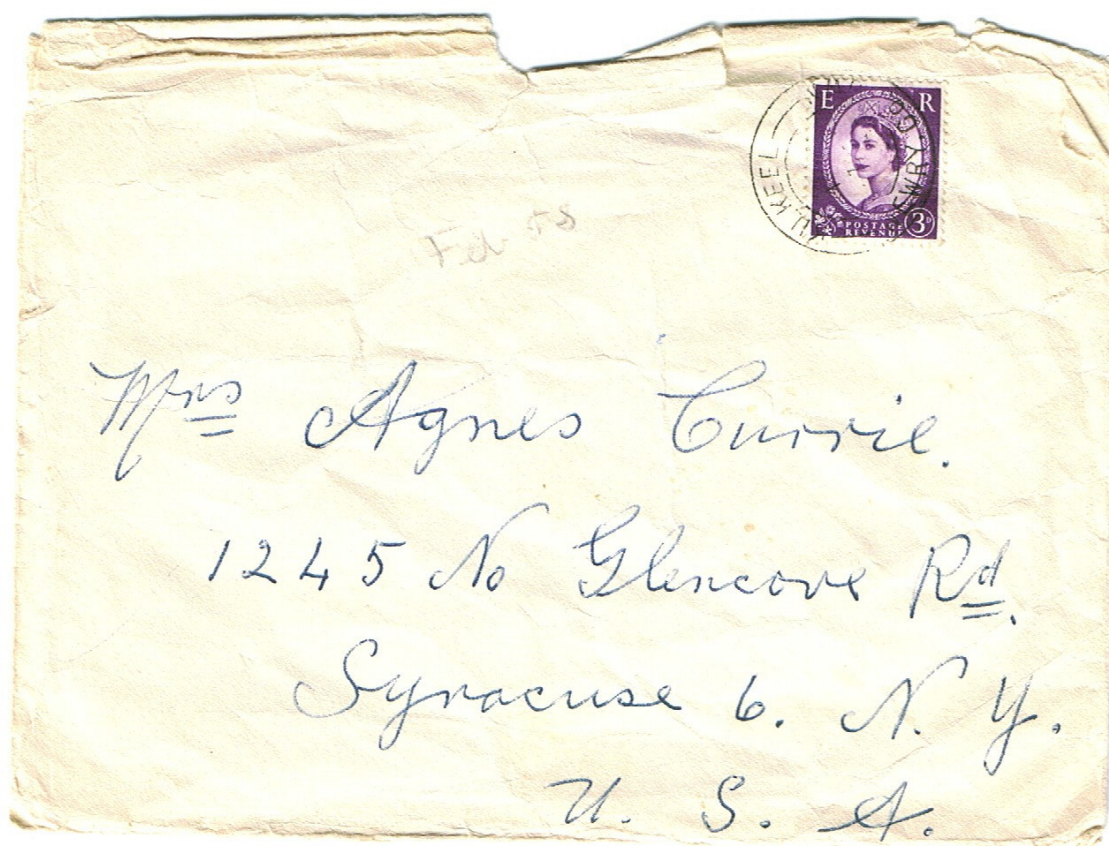 E R
KILKEEL
NEWRY CO
POSTAGE
REVENUE
3D
Feb 58
Mrs Agnes Currie.
1245 No Glencove Rd.
Syracuse 6. N. Y.
U. S. A.